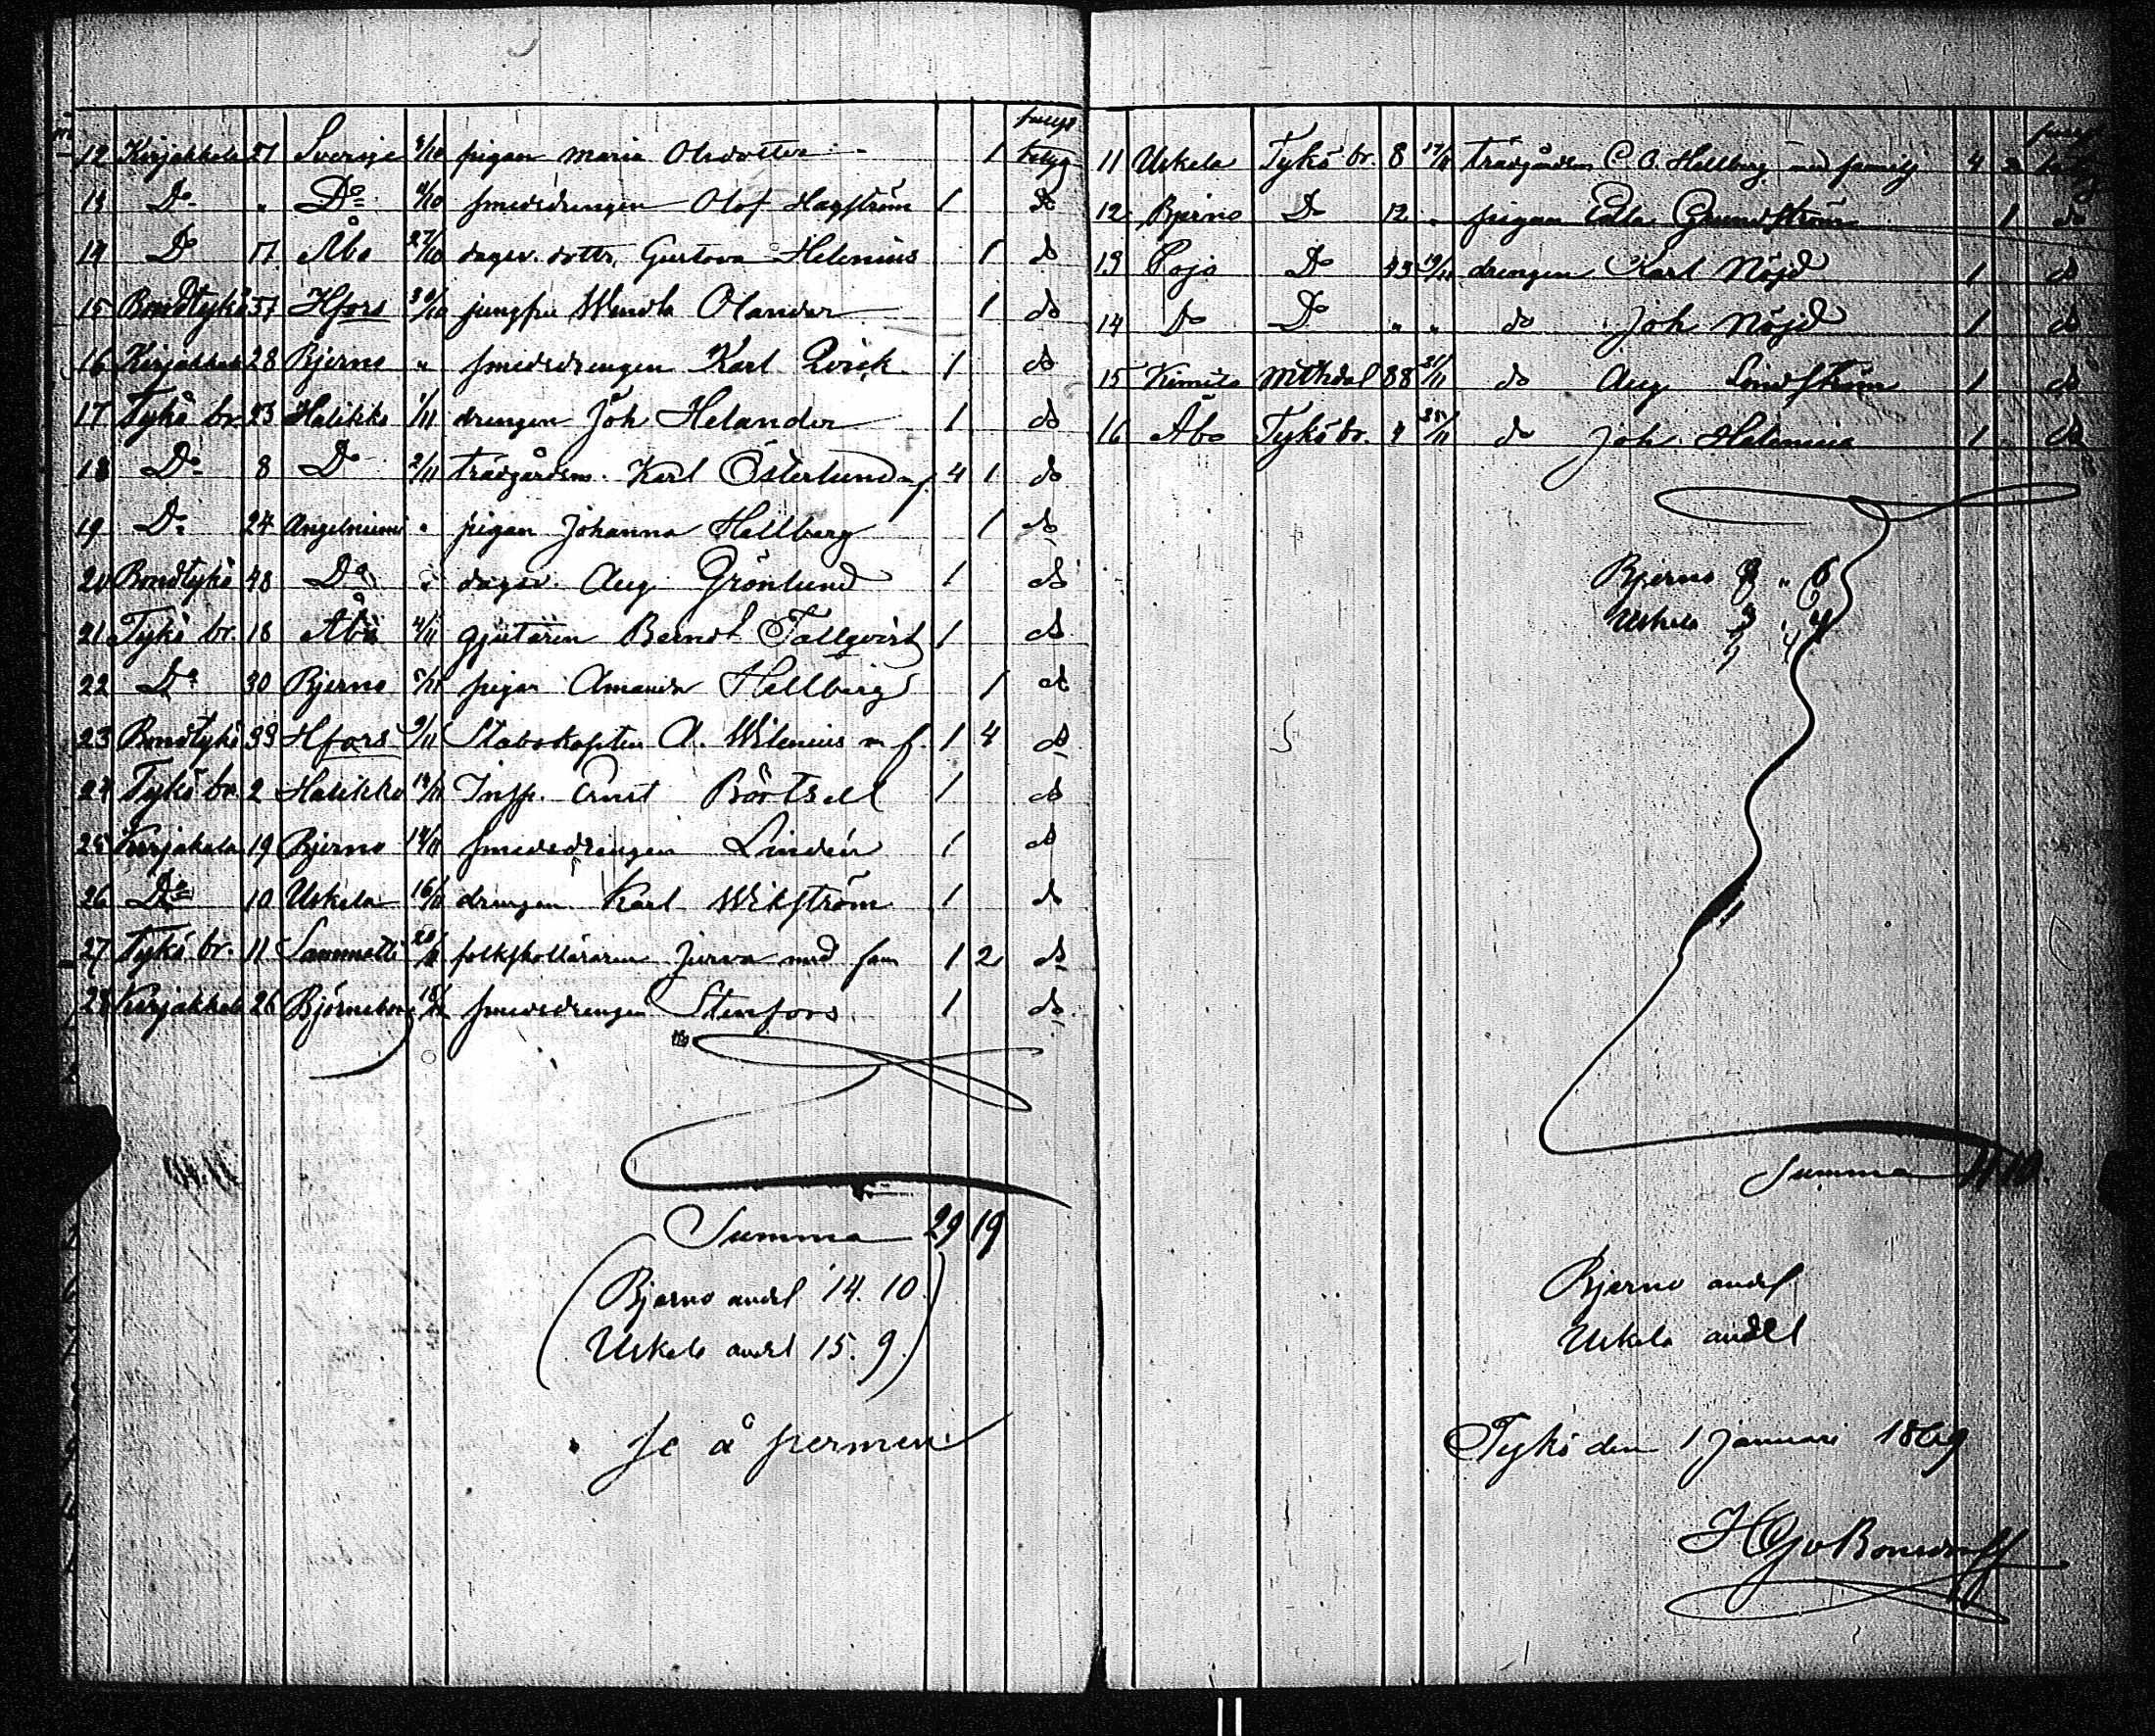 12 Kirjakkala 21 Sverige 8/10 pigan Maria Olsdotter 1 betyg
13 Do " Do 8/10 smedsdrengen Olof Hagström 1 do
14 Do 17 Åbo 27/10 dagsv. dottr. Gustava Helenius 1 do
15 Bondtykö 57 Hfors 30/10 jungfru Wendla Olander 1 do
16 Kirjakkala 28 Bjerno " smedsdrengen Karl Qvick 1 do
17 Tykö br. 23 Halikko 1/11 drengen Joh Helander 1 do
18 Do 8 Do 2/11 trädgårdsm. Karl Österlund m f. 4 1 do
19 Do 24 Angelniemi " pigan Johanna Hellberg 1 do
20 Bondtykö 48 Do " dagsv. Aug. Grönlund 1 do
21 Tykö br. 18 Åbo 4/11 gjutaren Berndt Tallqvist 1 do
22 Do 30 Bjerno 5/11 pigan Amanda Hellberg 1 do
23 Bondtykö 33 Hfors 9/11 Stabskapten A. Wilenius m f. 1 4 do
24 Tykö br. 2 Halikko 13/11 Insp. Ernst Börtsell 1 do
25 Kirjakala 19 Bjerno 14/11 smedsdrengen Lindén 1 do
26 Do 10 Uskela 16/11 drengen Karl Wikström 1 do
27 Tykö br. 11 Sammatti 20/11 folkskolläraren Jurva med fam 1 2 do
28 Kirjakkala 26 Björneborg smedsdrengen Stenfors 1 do
Summa 29 19
(Bjerno andel 14. 10
Uskela andel 15. 9.)
se å permen
11 Uskela Tykö br. 8 17/11 trädgårdsm C. O. Hellberg med familj 4 2 betyg
12 Bjerno Do 12 " pigan Edla Grundström 1 do
13 Pojo Do 43 19/11 drengen Karl Nöjd 1 do
14 Do Do " " do Joh Nöjd 1 do
15 Kimito Mthdal 38 21/11 do Aug Lindström 1 do
16 Åbo Tykö br. 4 25/11 do Joh. Helenius 1 do
Bjerno " 6
Uskela
Summa 11 10.
Bjerno andel
Uskela andel
Tykö den 1 Januari 1869
HGvBonsdorff